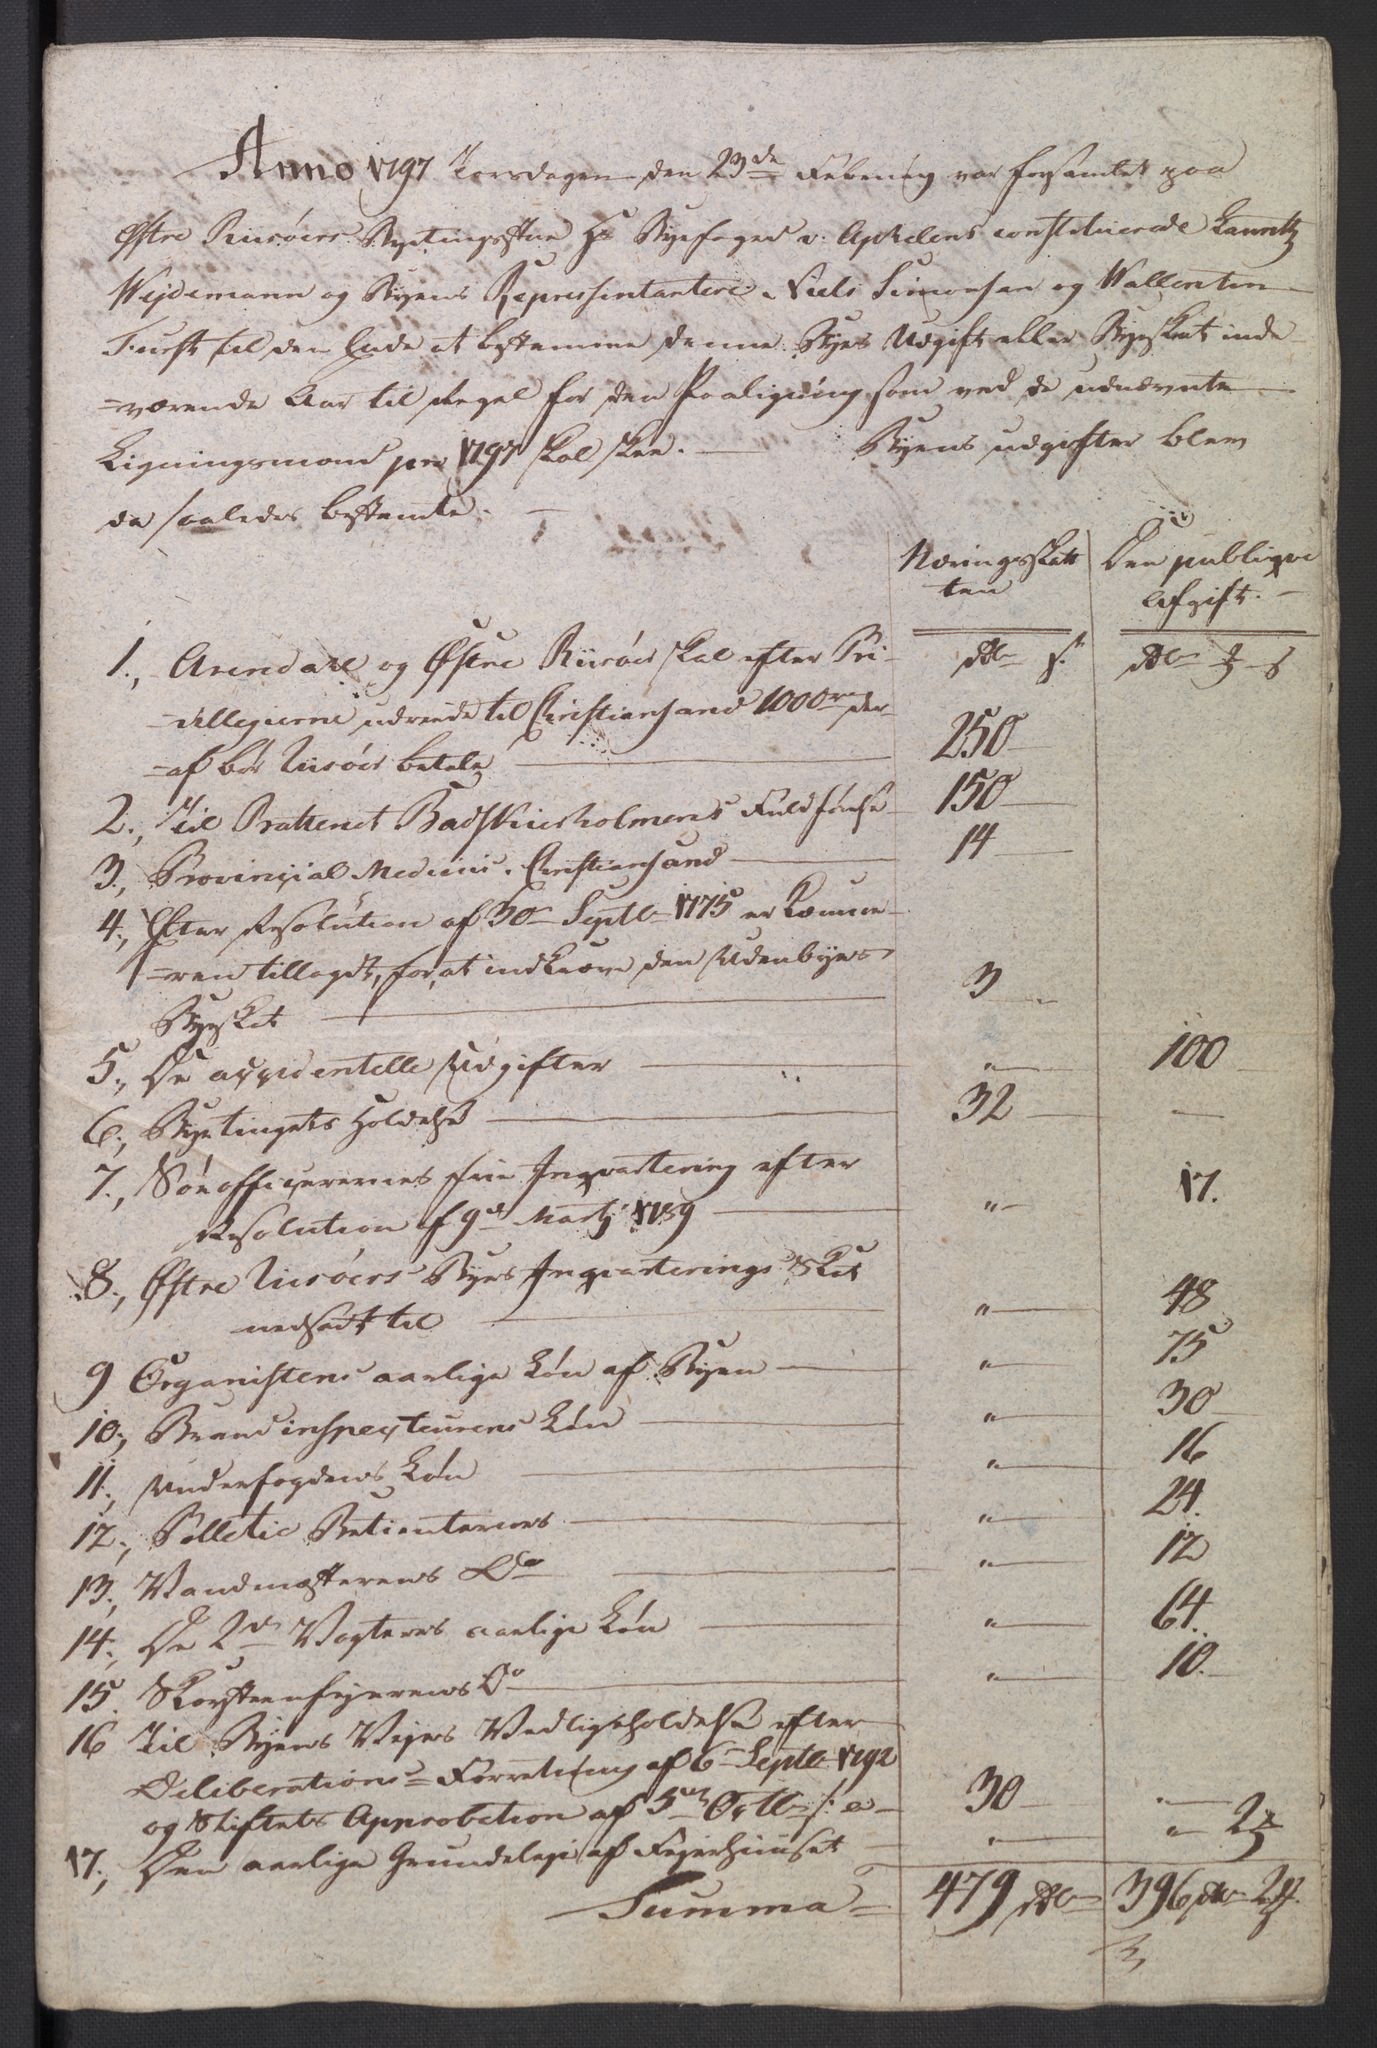 Anno 1797 Torsdagen den 23de Februarij var forsamlet paa
Østre Riisöers Byetingsstue Hr Byefoged v: Aphelens constituerede Lauritz
Weydemann og Byens Repræsentantere Niels Simonsen og Wallentin
Furst til den Ende at bestemme denne Byes Udgift eller Byeskat inde
=værende Aar til Regel for den Paaligning som ved de udnævnte
Ligningsmænd pro 1797 skal skee. — Byens udgifter blev
da saaledes bestemte. —
Næringsskat Den publiqve
ten Afgift. —
Rdlr s. Rdlr ƶ s
1., Arendahl og Østre Riisöer skal efter Pri-
=villegierne udreede til Christiansand 1000rd der-
=af bör Riisöer betale — 250
2., Til Batteriet Tangholmens Fuldförelse 150 —
3., Provinzial Medicus. Christiansand — 14 —
4., Efter Resolution af 30 Septb 1775 er Kæmme-
=ren tillagdt, for at indkræve den Udenbyes
Byeskat — 3 —
5., De accidentelle Udgifter — " — 100
6., Byetingets Holdelse — 32 — —
7., Söeofficererernes frie Inqvartering efter
Resolution af 9de Martj 1789 — " — 17.
8., Østre Riisöers Byes Inqvarterings Skat
nedsadt til — " — 48
9 Organistens aarlige Lön af Byen — " — 75
10., Brandinspecteurens Lön — " — 30
11., Underfogdens Lön — " — 16
12., Pollitie Betienternes — " — 24.
13., Vandmesterens Do — " — 12
14., De 2de Vægteres aarlige Lön — " — 64.
15. Skorsteenfejerens Do — " — 10.
16 Til Byens Vejes Vedligeholdelse efter
Deliberations=Forretning af 6 Septb 1792
og Stiftets Approbation af 5te Octb s: a — 30 — " —
17., Den aarlige Grundeleje af Fejerhuuset — " — " 2ƶ
Summa = 479 Rdlr 396 Rdlr 2ƶ.